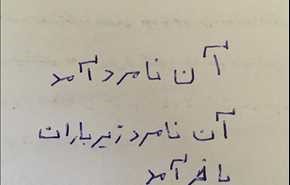 آن نامرد آمد
آن نامرد زیر بارات
با فر آمد